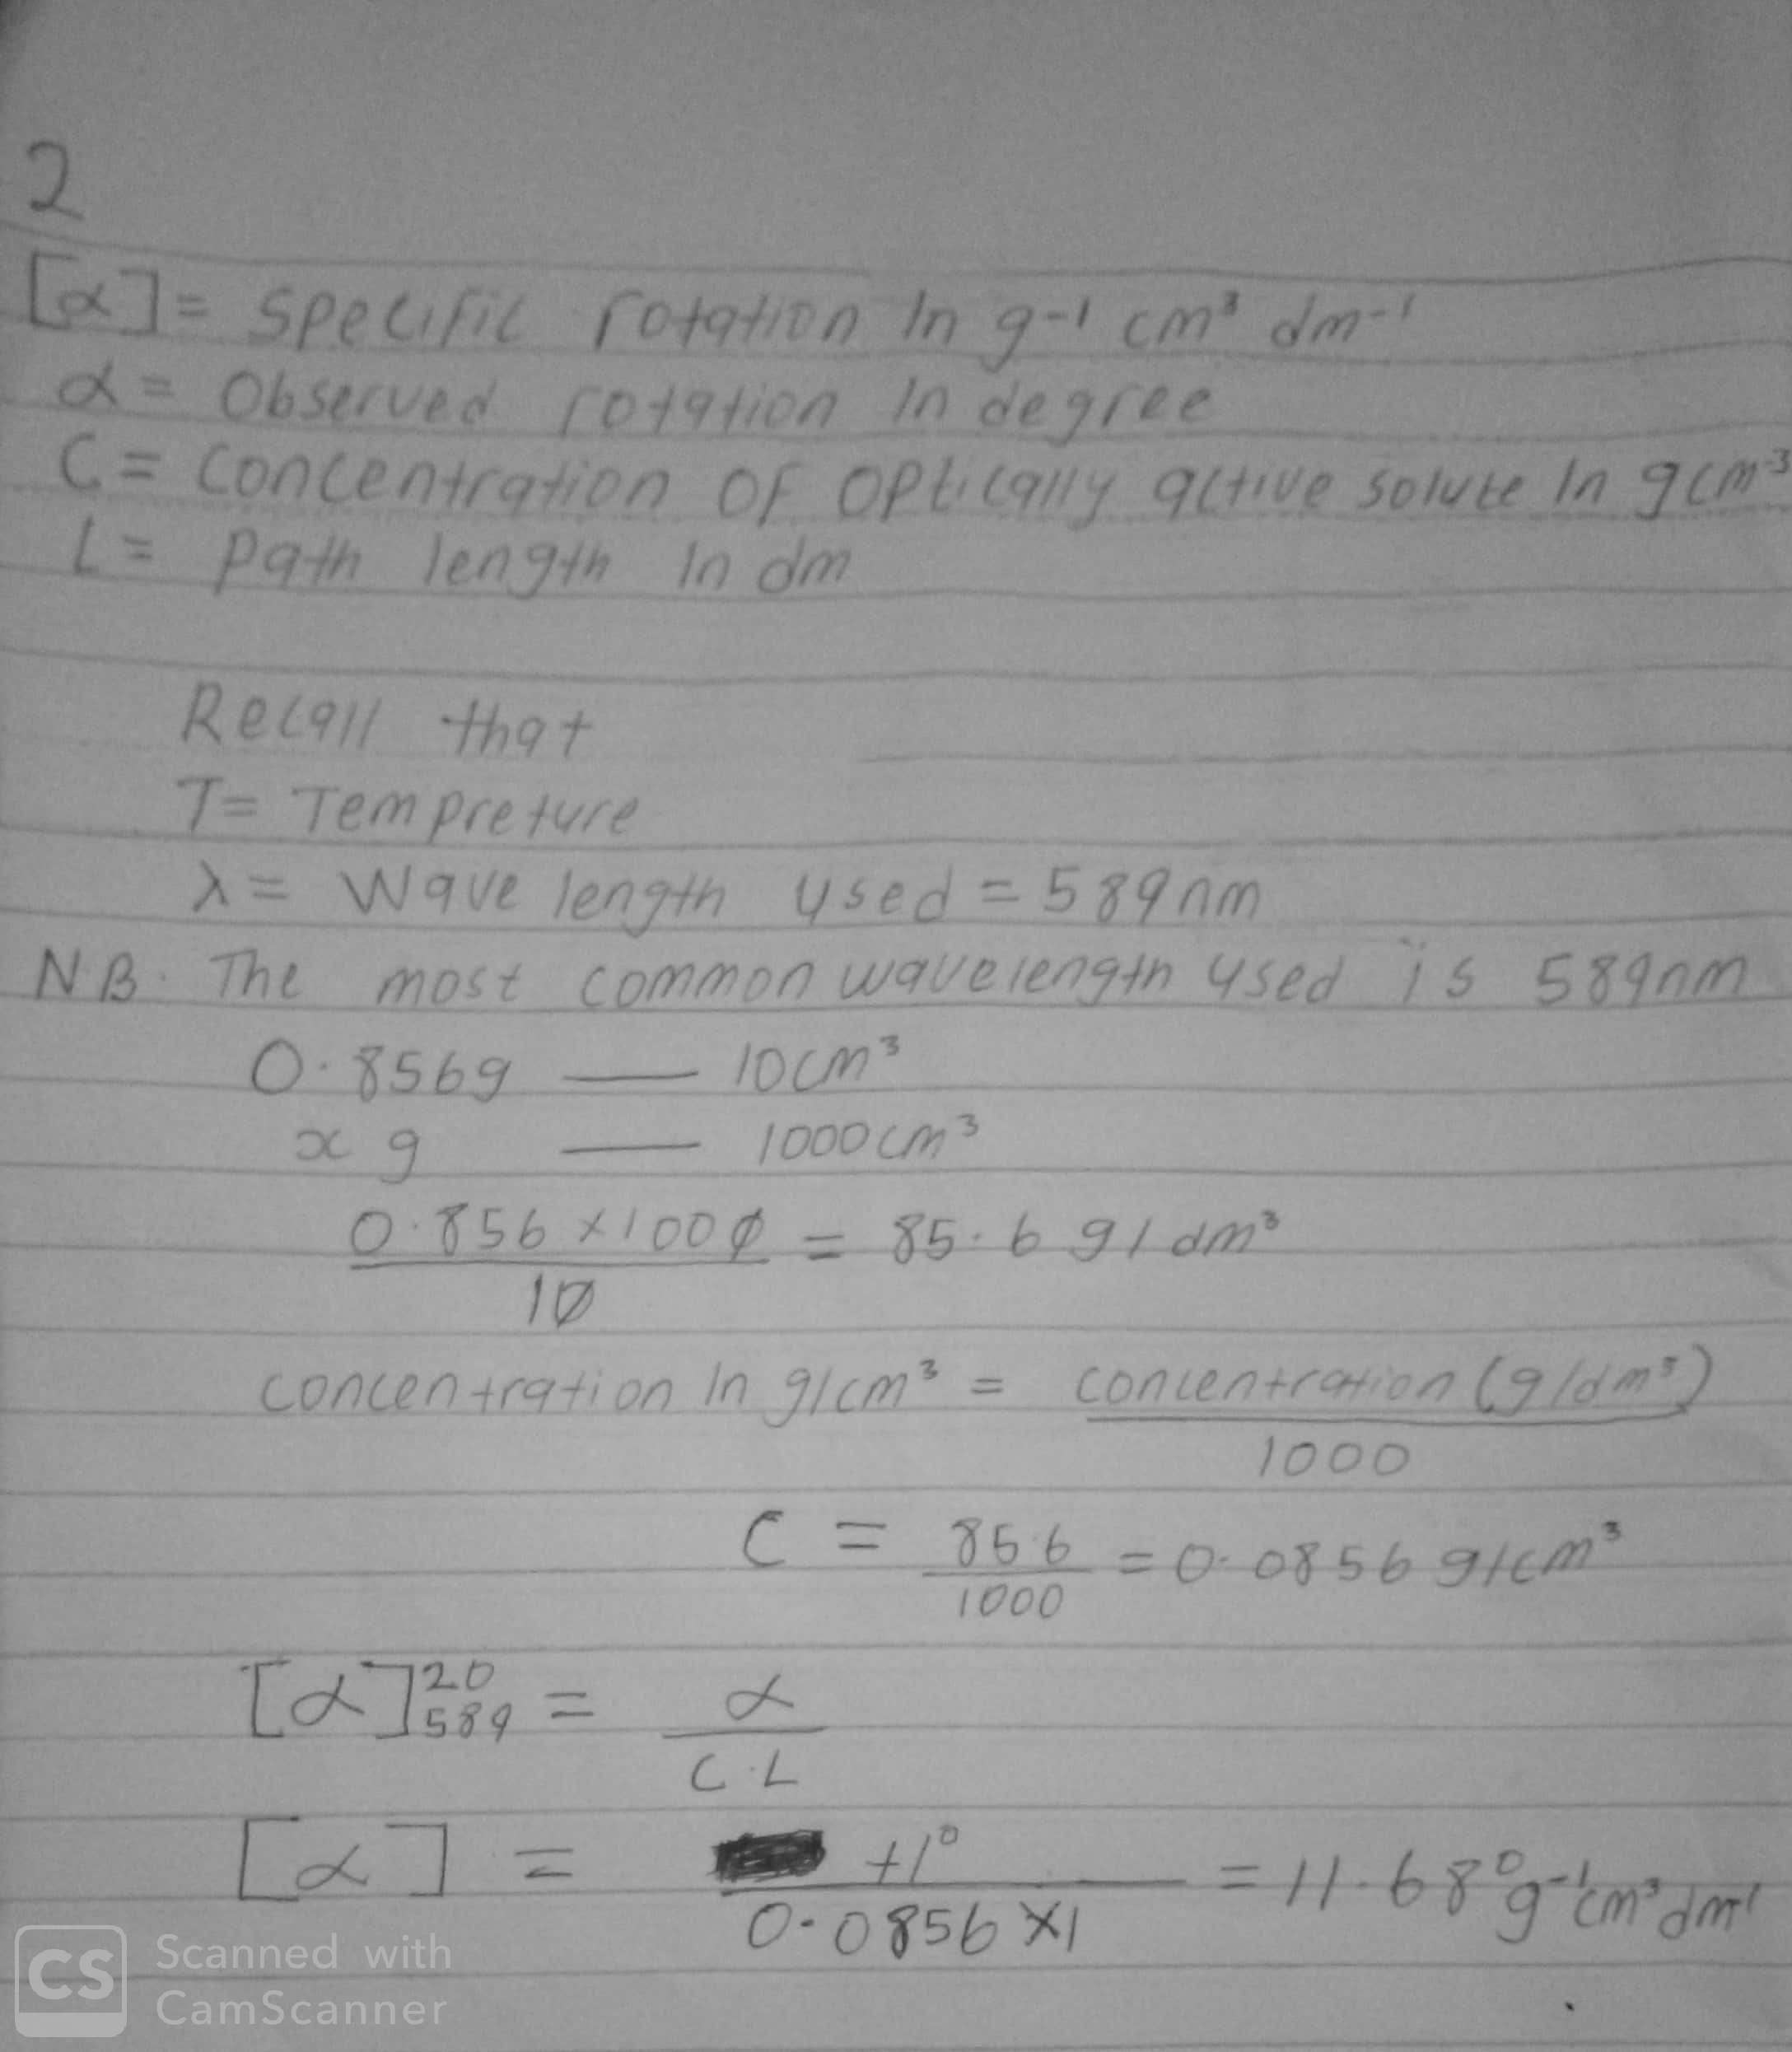 2
[α] = Specific rotation in g-1 cm³ dm-1
α = Observed rotation in degree
C = Concentration of optically active solute in gcm³
L = path length in dm
Recall that
T = Tempreture
λ = Wave length used = 589nm
NB. The most common wavelength used is 589nm
0.856g — 10cm³
x g — 1000cm³
0.856 × 1000 = 85.6 g/dm³
10
concentration in g/cm³ = concentration (g/dm³)
1000
C = 85.6 = 0.0856 g/cm³
1000
[α]²⁰₅₈₉ = α
C.L
[α] = +1° = 11.68° g⁻¹cm³dm⁻¹
0.0856 × 1
CS Scanned with
CamScanner